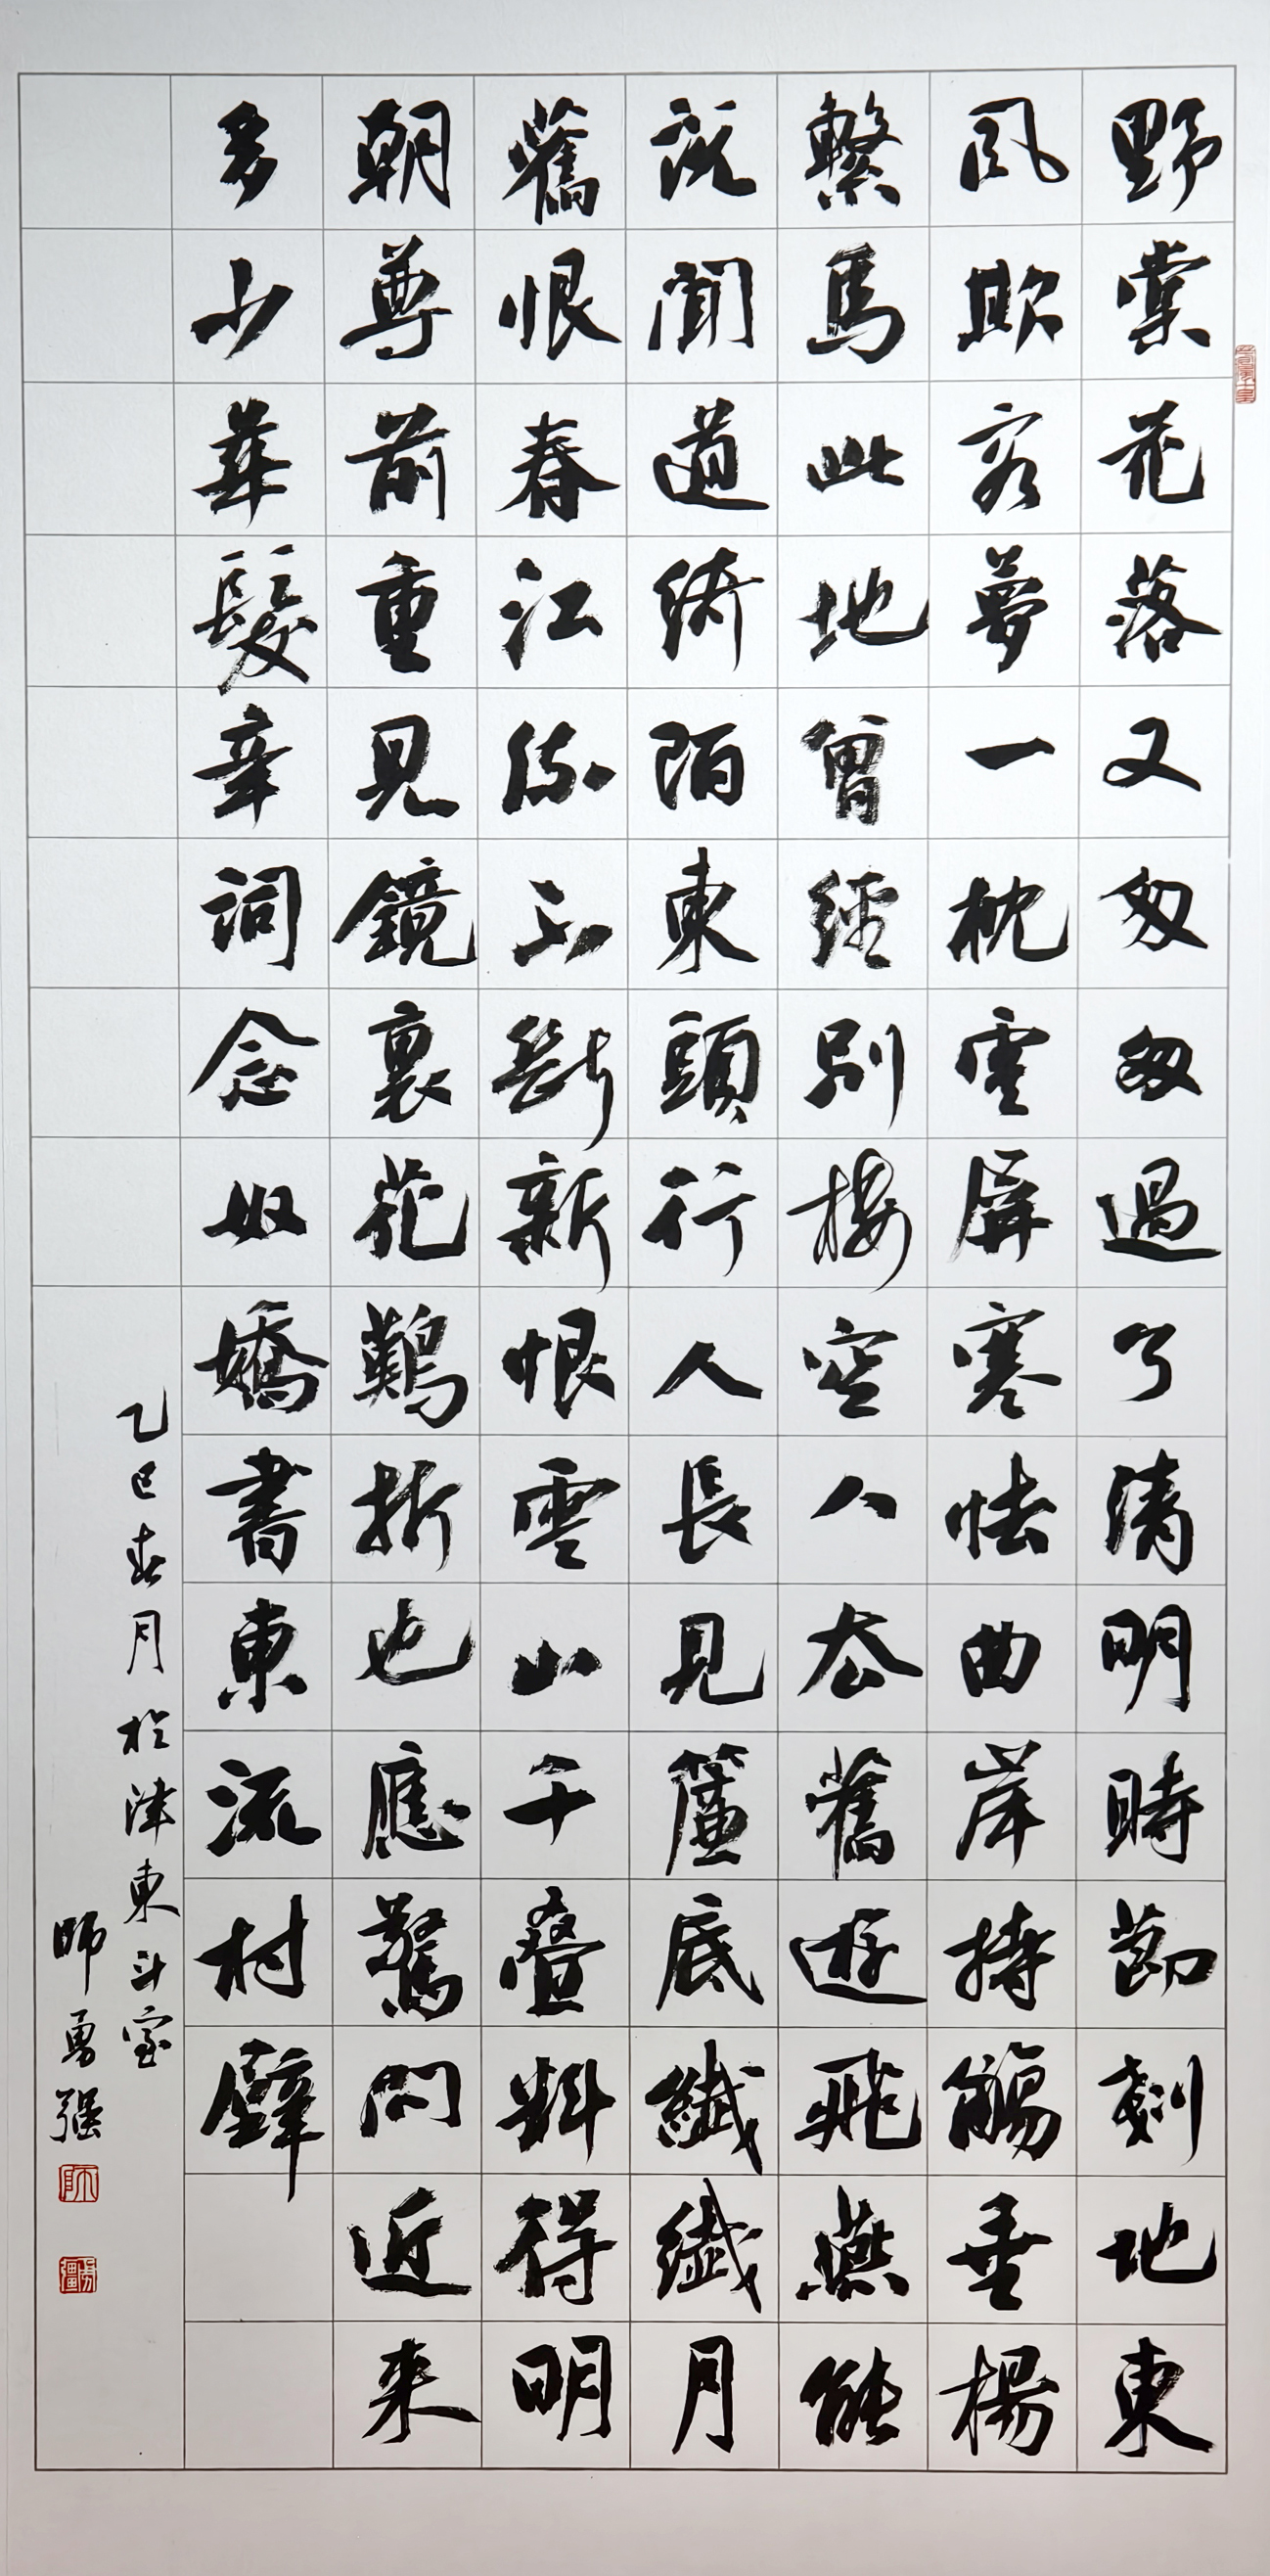 野棠花落又匆匆過了清明時節剗地東
風欺客夢一枕雲屏寒怯曲岸持觴垂楊
繫馬此地曾經別樓空人去舊遊飛燕能
說聞道綺陌東頭行人長見簾底纖纖月
舊恨春江流不斷新恨雲山千疊料得明
朝尊前重見鏡裏花難折也應驚問近來
多少華髮辛詞念奴嬌書東流村壁
乙巳春月於津東斗室
師勇强
師
勇彊